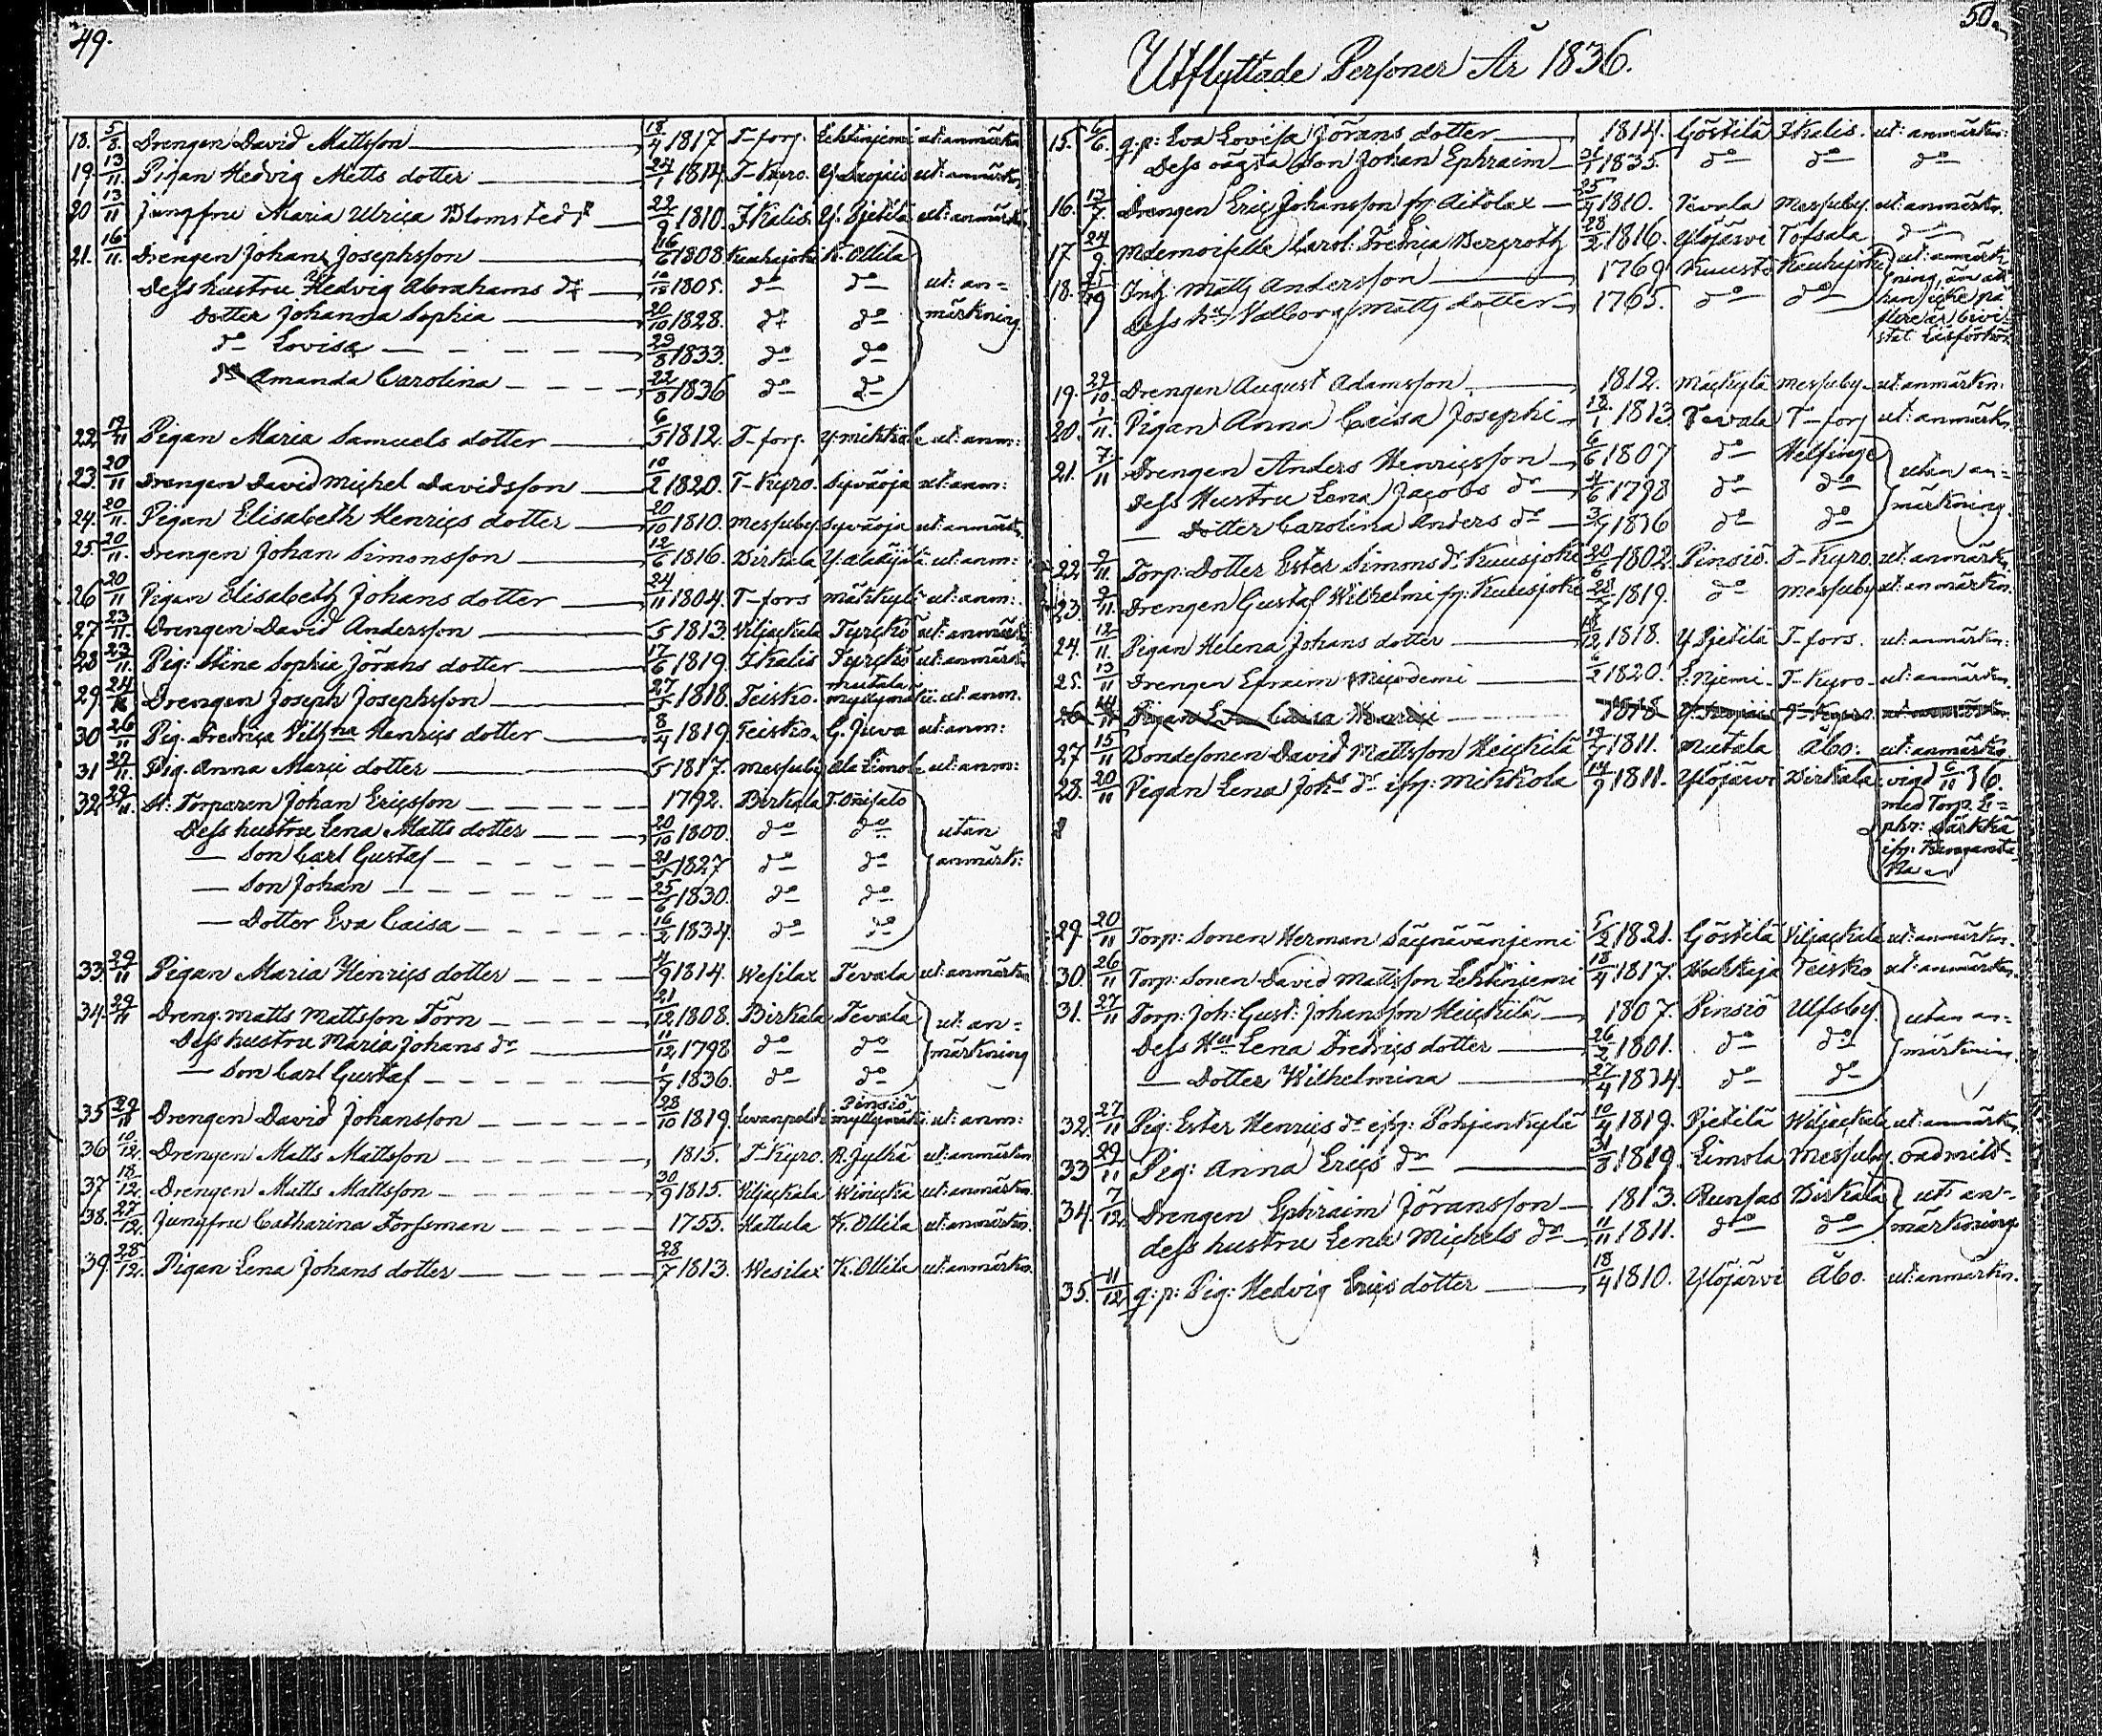 49.
18. 5/8. Drengen David Mattsson 18/4 1817 T-fors. Lehtinjemi ut: anmärkn
19. 13/11. Pigan Hedvig Matts dotter 24/1 1814. T-Kyro. ut: anmärkn
20 13/11 Jungfru Maria Ulrica Blomstedt 22/9 1810. Ikalis. Y. Pjetilä ut: anmärkn
21. 16/11. Drengen Johan Josephsson 16/6 1808 Kauhajoki K. Ollila
Dess hustru Hedvig Abrahams dr 1805. do do ut: an=
Dotter Johanna Sophia 20/10 1828. do do märkning
do Lovisa 29/8 1833. do do
do Amanda Carolina 22/8 1836 do do
22. 19/11 Pigan Maria Samuels dotter 6/5 1812. T-fors. Y. Mikkola ut: anm:
23. 20/11 Drengen David Michel Davidsson 10/2 1820. T-Kyro. Syväoja ut: anm:
24. 20/11. Pigan Elisabeth Henrics dotter 20/10 1810. Messuby Syväoja ut: anmärkn
25. 20/11. Drengen Johan Simonsson 12/6 1816. Birkala ut: anm:
26 20/11 Pigan Elisabeth Johans dotter 24/11 1804. T-fors ut: anm:
27 23/11. Drengen David Andersson /5 1813. Viljackala Tyrckö ut: anmärk
28 23/11. Pig: Stina Sophia Jörans dotter 17/6 1819. Ikalis Tyrckö ut: anmärkn
29. Drengen Joseph Josephsson 27/5 1818. Teisko. Mutala ut: anm.
30 26/11 Pig. Fredrica Vilhna Henrics dotter 8/4 1819. Teisko. G. Juva ut: anm:
31 27/11. Pig. Anna Marci dotter /5 1817. Messuby Ala Limola ut: anm:
32. 29/11. St: Torparen Johan Ericsson 1792. Birkala
Dess hustru Lena Matts dotter 20/10 1800. do do utan
— Son Carl Gustaf 21/5 1827 do do anmärk:
— Son Johan 25/6 1830. do do
— Dotter Eva Caisa 16/2 1834. do do
33. 29/11 Pigan Maria Henrics dotter 4/9 1814. Wesilax Tevala ut: anmärkn
34. 29/11 Dreng. Matts Mattsson Törn 21/12 1808. Birkala Tevala ut: an=
Dess hustru Maria Johans dr 11/12 1798 do do märkning
— Son Carl Gustaf 1/7 1836. do do
35 29/11 Drengen David Johansson 28/10 1819. Pinsiö ut: anm:
36 10/12. Drengen Matts Mattsson 1815. T-Kyro. R. Jylhä ut: anmärkn
37 18/12. Drengen Matts Mattsson 30/9 1815. Viljackala ut: anmärkn.
38. 27/12. Jungfru Catharina Forssman 1755. Hattula K. Ollila ut: anmärkn.
39. 28/12. Pigan Lena Johans dotter 28/7 1813. Wesilax K. Ollila ut: anmärkn.
50.
Utflyttade Personer År 1836.
15. 6/6. q.p: Eva Lovisa Jörans dotter 1814. Göstilä Ikalis. ut: anmärkn:
Dess oägta Son Johan Ephraim 1835. do do do
16. 13/7. Drengen Eric Johansson fr. Aitolax 25/4 1810. Tevala Messuby. ut: anmärkn.
17 24/9 Mademoiselle Carol: Fredrica Bergroth 28/2 1816. Ylöjärvi Tôfsala do
18. Inh: Matts Andersson 1769 Kuusto Kauhajoki ut: anmärk
Dess hu Valborg Matts dotter 1765. do do ning, än att
han icke på
flere år bevi-
stat Läsförhör.
19. 29/10. Drengen August Adamsson 1812. Mäckylä Messuby ut: anmärkn:
20. 1/11. Pigan Anna Caisa Josephi 18/1 1813 Tevala T-fors ut: anmärkn.
21. 7/11 Drengen Anders Henricsson 6/6 1807 do Helsinge utan an=
Dess Hustru Lena Jacobs dr 4/6 1798 do do märkning.
— Dotter Carolina Anders dr 1836 do do
22. 9/11. Torp: Dotter Ester Simons dr Kuusjoki 20/6 1802. Pinsiö. T-Kyro. ut: anmärkn.
23. 9/11. Drengen Gustaf Wilhelmi fr: Kuusjoki 1819. do Messuby ut: anmärkn.
24. 12/11. Pigan Helena Johans dotter 18/12 1818. Y Pjetilä T-fors. ut: anmärkn:
25. 13/11 Drengen Efraim Nicodemi 6/2 1820. L:njemi T-Kyro ut: anmärkn.
26 14/11 Pigan Eva Caisa 1818 T-Kyro ut: anmärkn.
27 15/11 Bondesonen David Mattsson Heickilä 1811. Mutala Åbo. ut: anmärkn.
28. 20/11 Pigan Lena Johs dr ifr: Mikkola 14/9 1811. Ylöjärvi Birkala vigd 6/11 36.
med Torp. E=
phr: Särkkä
ifr:
29. 20/11 Torp: Sonen Herman Säynävänjemi 5/2 1821. Göstilä Viljackala ut: anmärkn.
30. 26/11 Torp: Sonen David Mattsson Lehtinjemi 18/4 1817. Teisko ut: anmärkn.
31. 27/11 Torp: Joh: Gust: Johansson Heickilä 1807. Pinsiö Ulfsby. utan an=
Dess Hu Lena Fredrics dotter 26/2 1801. do do märkning.
— Dotter Wilhelmina 27/4 1834. do do
32. 27/11 Pig: Ester Henrics dr ifr: Pohjankylä 10/4 1819. Pjetilä Wiljackala ut: anmärkn.
33 29/11 Pig: Anna Erics dr 31/8 1819. Limola Messuby. oadmitt.
34. 7/12. Drengen Ephraim Jöransson 1813. Runsas Birkala ut: an=
dess hustru Lena Michels dr 11/11 1811. do do märkning
35. 11/12 q: p: Pig: Hedvig Erics dotter 18/4 1810. Ylöjärvi Åbo. ut: anmärkn.